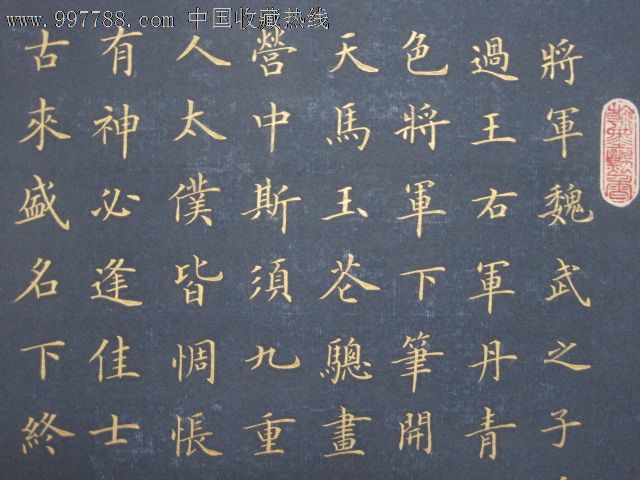 www.997788.com 中国收藏热线
將軍魏武之子
過王右軍丹青
色將軍下筆開
天馬玉花驄畫
營中斯須九重
人太僕皆惆悵
有神必逢佳士
古來盛名下終